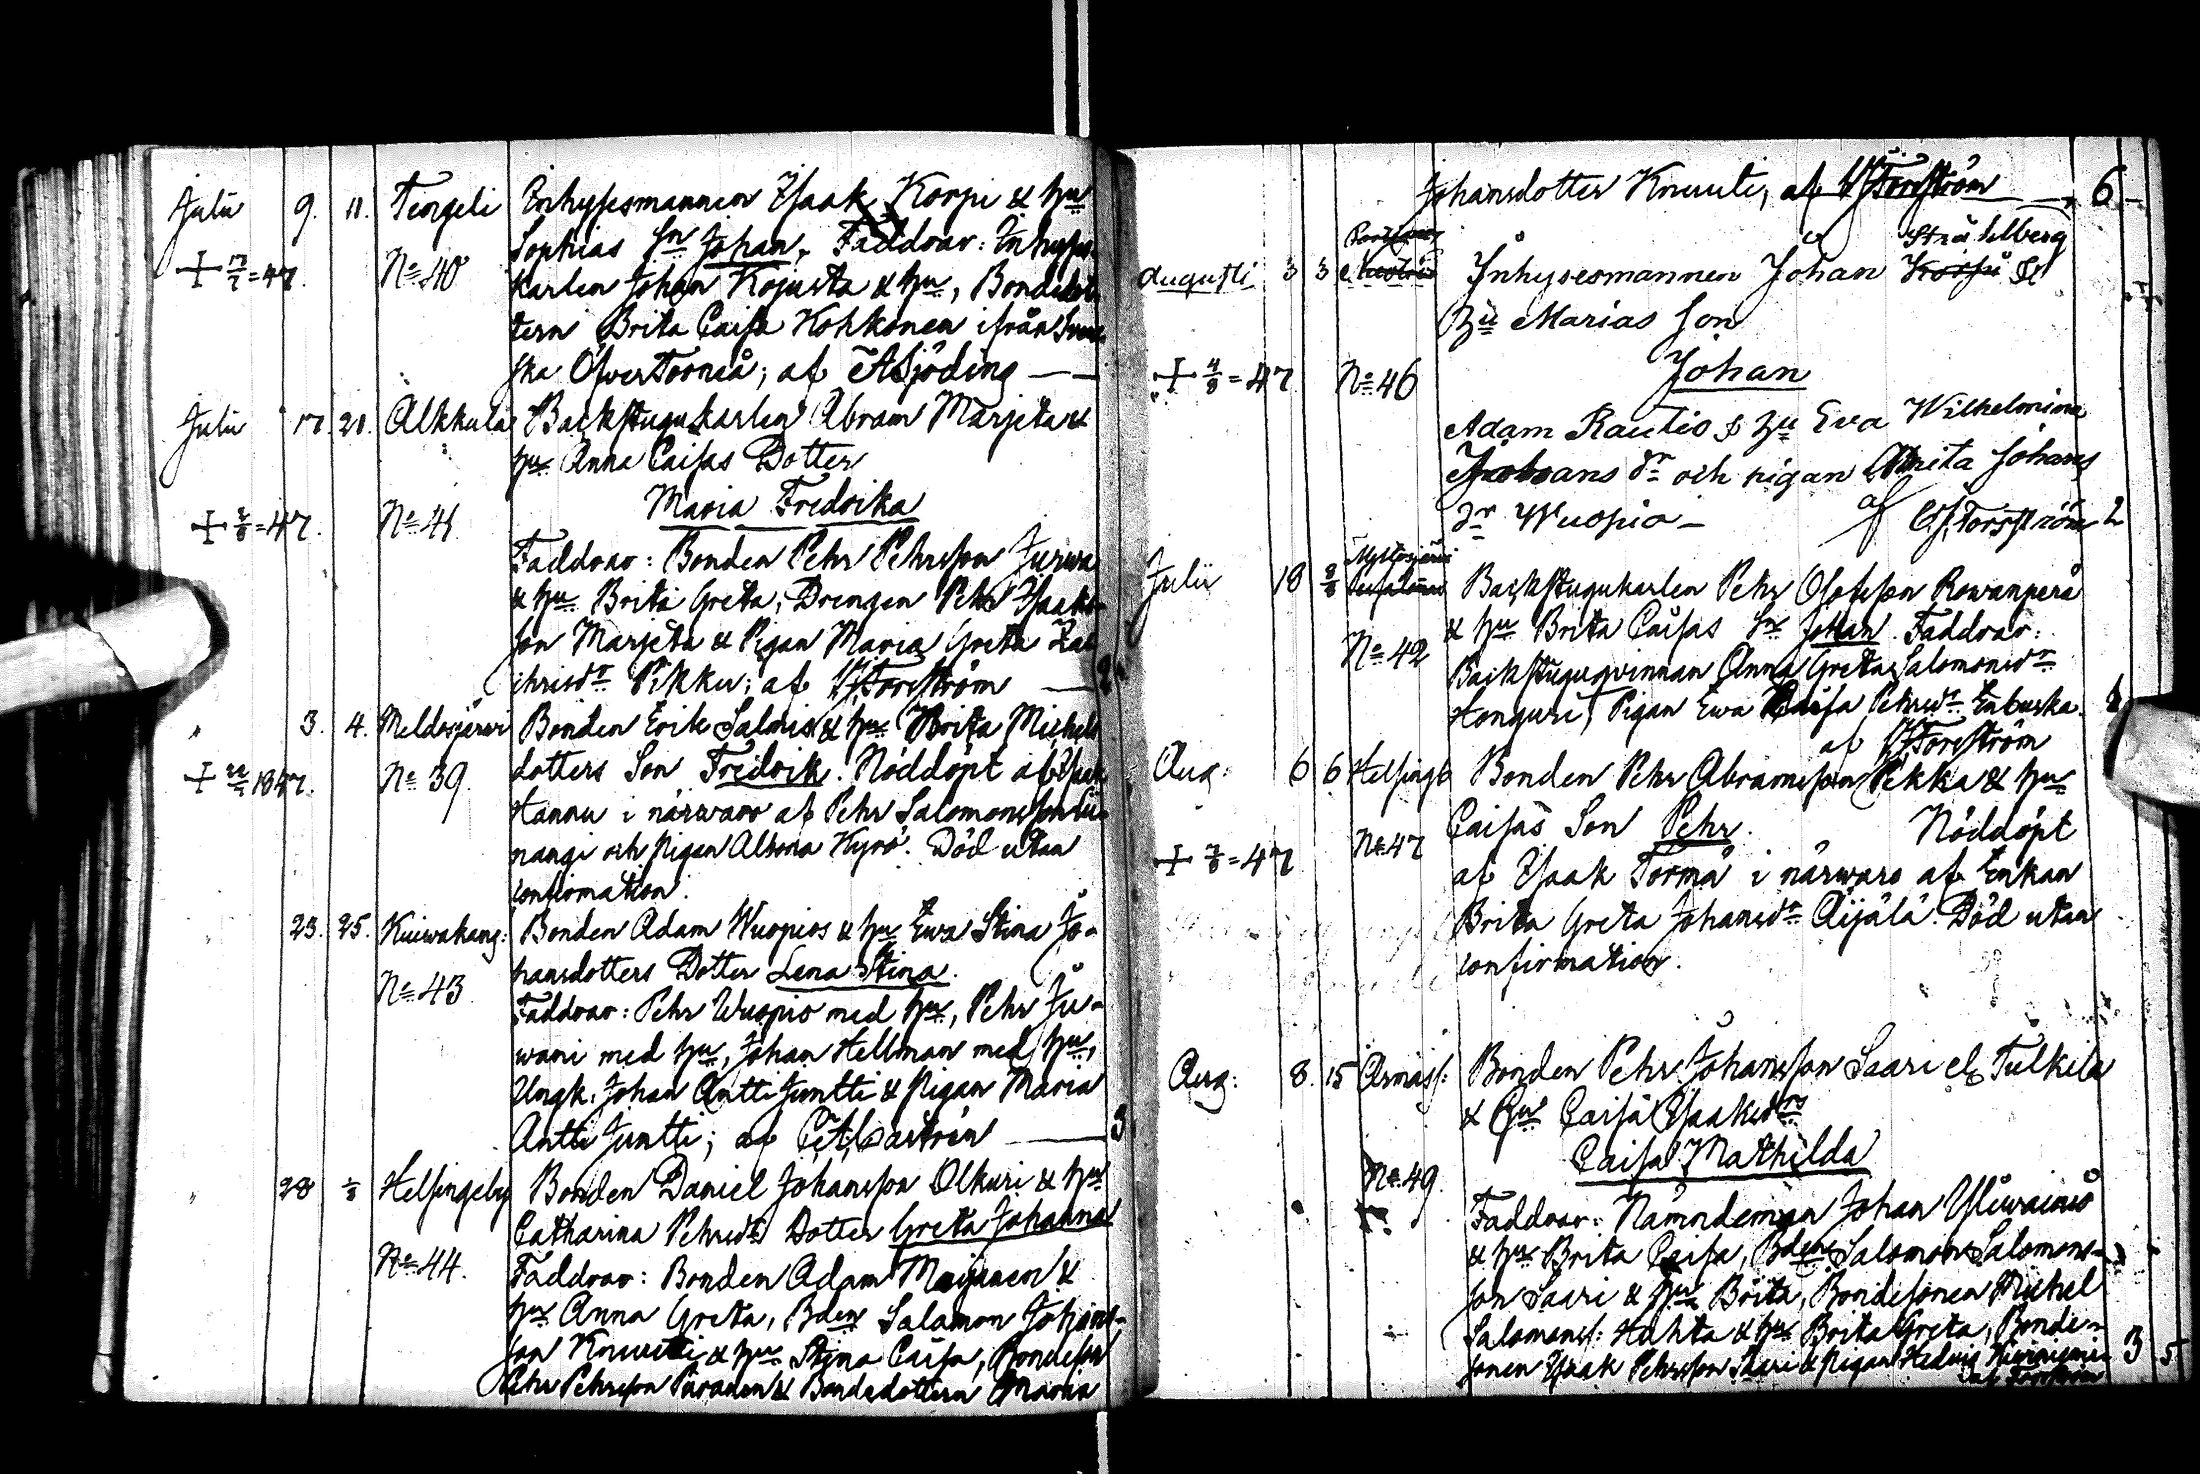 Julii 9. 11. Tengeli Inhysesmannen Isaak Korpi & hu
Sophias Sn Johan, Faddrar: Inhyses-
+ 17/7 = 47. No 40 karlen Johan Kojusta & hu, Bondedot-
tern Brita Caisa Kohkonen ifrån Swen-
ska ÖfwerTorneå; af Sjöding —
Julii 17. 21. Alkkula Backstugukarlen Abram Marjeta &
hu Anna Caisas Dotter
Maria Fredrika
+ 2/8 = 47. No 41
Faddrar: Bonden Pehr Pehrsson Jurwa
& hu Brita Greta, Drengen Pehr Isaaks-
son Marjeta & Pigan Maria Greta Zac-
chrisdr Pikku; af Forsström —
" 3. 4. Meldosjärwi Bonden Erik Salmis & hu Brita Michels
+ 22/7 1847. No 39. dotters Son Fredrik. Nöddöpt af Isak
Hannu i närwaro af Pehr Salomonsson
nangi och Pigan Albona Kyrö. Död utan
confirmation.
" 23. 25. Kuiwakang: Bonden Adam Wuopios & hu Ewa Stina Jo-
hansdotters Dotter Lena Stina.
No 43. Faddrar: Pehr Wuopio med hu, Pehr Ju-
wani med hu, Johan Hellman med hu,
Ungk. Johan Antti Juntti & Pigan Maria
Antti Juntti; af Castrén — 3
" 28 1/8 Helsingeby Bonden Daniel Johansson Olkuri & hu
Catharina Pehrsdrs Dotter Greta Johanna
No 44. Faddrar: Bonden Adam Maijanen &
hu Anna Greta, Bden Salamon Johans-
son Knuuti & hu Stina Caisa, Bondeson
Pehr Pehrsson Paranen & Bondedottern Maria
Johansdotter Knuuti, af Forsström — 6
Stråhlberg
Augusti 3 3 Inhysesmannen Johan &
Hu Marias Son
Johan
+ 4/8 = 47 No 46
Adam Rautio & Hu Eva Wilhelmina
Jacobsans dr och pigan Brita Johans
dr Wuopio — af Forsström 2
Julii 18 8/8 Backstugukarlen Pehr Olofsson Rowanperä
No 42 & hu Brita Caisas Sn Johan. Faddrar:
Backstuguqvinnan Anna Greta Salomonsdr
Honguri, Pigan Ewa Caisa Pehrsdr Enbuska.
af Forsström
Aug: 6 6 Helsingb Bonden Pehr Abramsson Pekka & hu
Caisas Son Pehr. Nöddöpt
+ 7/8 = 47 No 47 af Isaak Tormä i närwaro af Enkan
Brita Greta Johansdr Äijälä. Död utan
confirmation.
Aug: 8. 15 Armass: Bonden Pehr Johansson Saari el. Tulkila
& hu Caisa Isaksdrs
Caisa Mathilda
No 49.
Faddrar: Nämndeman Johan Yliwainiö
& hu Brita Caisa, Bden Salomon Salomons-
son Saari & hu Brita, Bondesonen Michel
Salomonss: Hahta & hu Brita Greta, Bonde-
sonen Isaak Pehrsson Saari & Pigan Hedwig 3 5